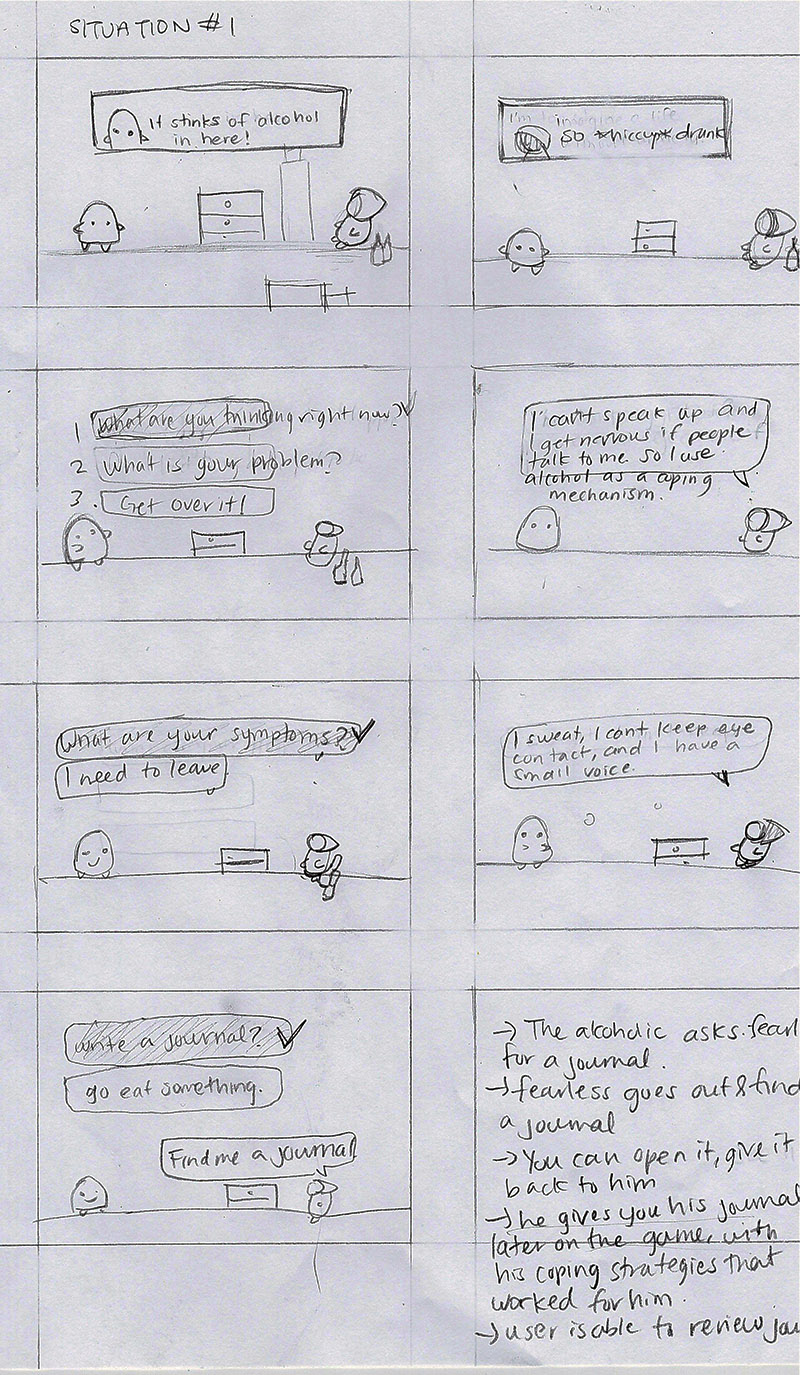 SITUATION #1
It stinks of alcohol
in here!
I'm imagine a life
so *hiccup* drunk
1 What are you thinking right now?
2 What is your problem?
3. Get over it!
I can't speak up and
I get nervous if people
talk to me. So I use
alcohol as a coping
mechanism.
What are your symptoms?
I need to leave
I sweat, I cant keep eye
contact, and I have a
small voice.
write a journal?
go eat something.
Find me a journal
→ The alcoholic asks fearl
for a journal.
→ fearless goes out & find
a journal
→ You can open it, give it
back to him
→ he gives you his journal
later on the game, with
his coping strategies that
worked for him.
→ user is able to review jou